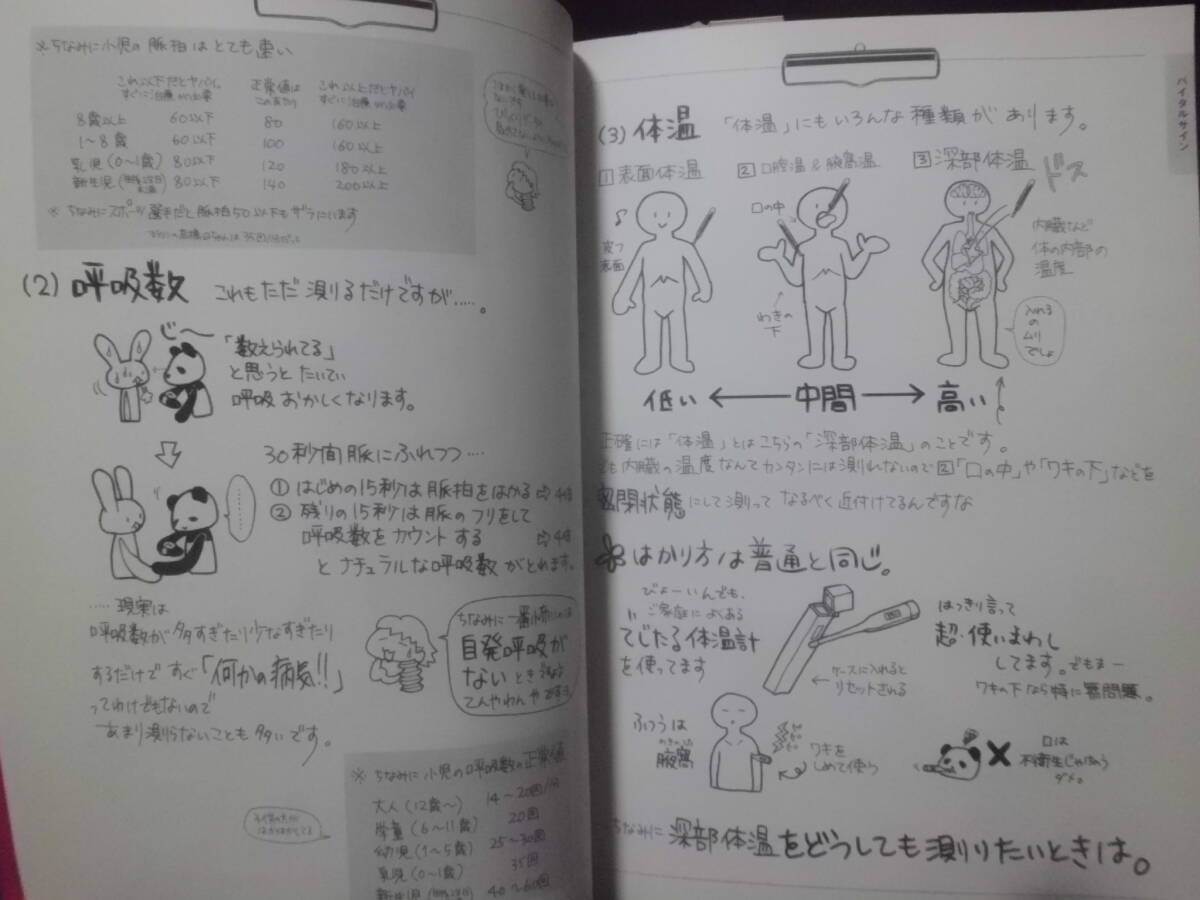 ※ちなみに小児の脈拍はとても速い
これ以下だとヤバイ すぐに治療 が必要
正常値は このあたり
これ以上だとヤバイ すぐに治療 が必要
8歳以上 60以下 80 160以上
1〜8歳 60以下 100 160以上
乳児(0〜1歳) 80以下 120 180以上
新生児 80以下 140 200以上
※ちなみにスポーツ選手だと脈拍50以下もザラにいます
(2) 呼吸数 これもただ測るだけですが‥‥。
じ〜
「数えられてる」
と思うとたいてい
呼吸おかしくなります。
30秒間脈にふれつつ…
① はじめの15秒は脈拍をはかる ⇨4倍
② 残りの15秒は脈のフリをして
呼吸数をカウントする ⇨4倍
とナチュラルな呼吸数がとれます。
‥‥現実は
呼吸数が多すぎたり少なすぎたり
するだけですぐ「何かの病気!!」
ってわけでもないので
あまり測らないことも多いです。
ちなみに一番怖いのは
自発呼吸が
ないとき
てんやわんやです
※ちなみに小児の呼吸数の正常値
大人(12歳〜) 14〜20回/分
学童(6〜11歳) 20回
幼児(1〜5歳) 25〜30回
乳児(0〜1歳) 35回
新生児 40〜60回
バイタルサイン
(3) 体温 「体温」にもいろんな種類があります。
1 表面体温
2 口腔温&腋窩温
3 深部体温
ドス
皮フ
表面
口の中
わきの
下
内臓など
体の内部の
温度
入れる
の
ムリ
でしょ
低い ← 中間 → 高い
正確には「体温」とはこちらの「深部体温」のことです。
でも内臓の温度なんてカンタンには測れないので図「口の中」や「ワキの下」などを
密閉状態にして測ってなるべく近付けてるんですな
はかり方は普通と同じ。
びょーいんでも、
ご家庭によくある
でじたる体温計
を使ってます
ケースに入れると
リセットされる
はっきり言って
超・使いまわし
してます。でもまー
ワキの下なら特に無問題。
ふつうは
腋窩
ワキを
しめて使う
口は
不衛生じゃけぇ
ダメ。
ちなみに深部体温をどうしても測りたいときは。